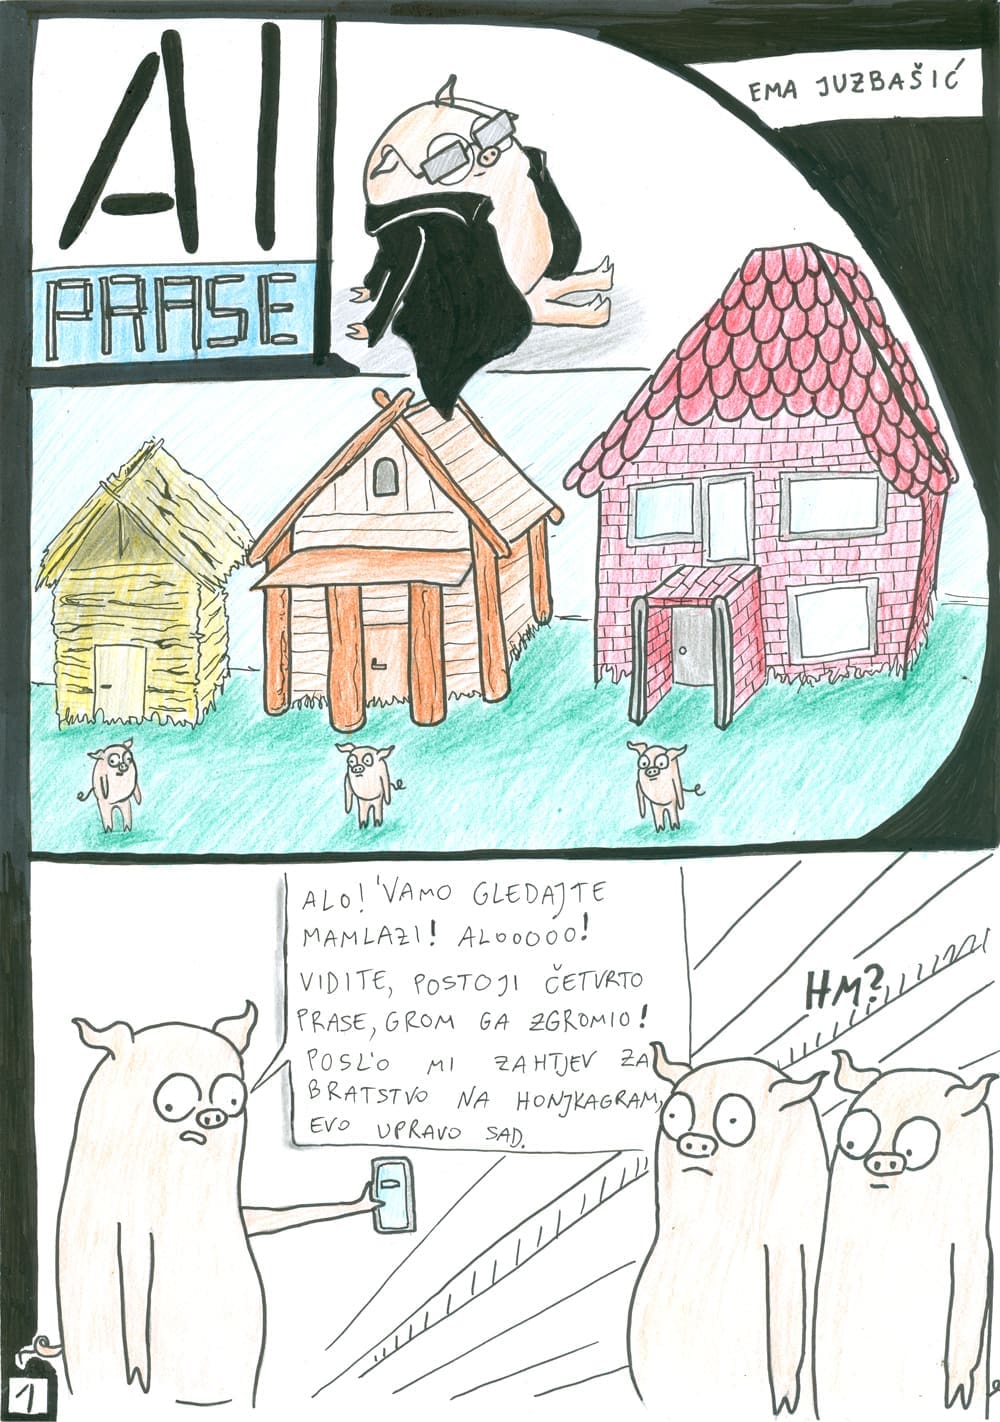 AI
PRASE
EMA JUZBAŠIĆ
ALO! 'VAMO GLEDAJTE
MAMLAZI! ALOOOOO!
VIDITE, POSTOJI ČETVRTO
PRASE, GROM GA ZGROMIO!
POSL'O MI ZAHTJEV ZA
BRATSTVO NA HONJKAGRAM,
EVO UPRAVO SAD.
HM?
1